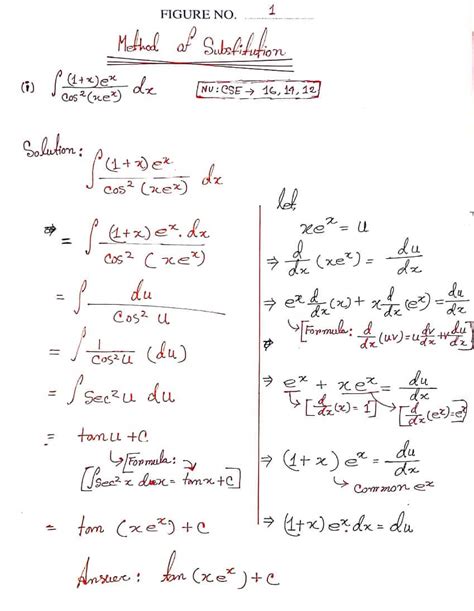 FIGURE NO. 1
Method of Substitution
(i) ∫ (1+x)eˣ / cos²(xeˣ) dx
NU: CSE → 16, 14, 12
Solution:
∫ (1+x)eˣ / cos²(xeˣ) dx
= ∫ (1+x)eˣ.dx / cos²(xeˣ)
= ∫ du / cos² u
= ∫ 1/cos²u (du)
= ∫ sec²u du
= tanu + c
↳ Formula:
[∫sec²x dx = tanx + c]
= tan (xeˣ) + c
Answer: tan (xeˣ) + c
let,
xeˣ = u
⇒ d/dx (xeˣ) = du/dx
⇒ eˣ d/dx (x) + x d/dx (eˣ) = du/dx
↳ [Formula: d/dx (uv) = u dv/dx + v du/dx]
⇒ eˣ + xeˣ = du/dx
↳ [d/dx (x) = 1] ↳ [d/dx (eˣ) = eˣ]
⇒ (1+x) eˣ = du/dx
↳ common eˣ
⇒ (1+x)eˣ.dx = du